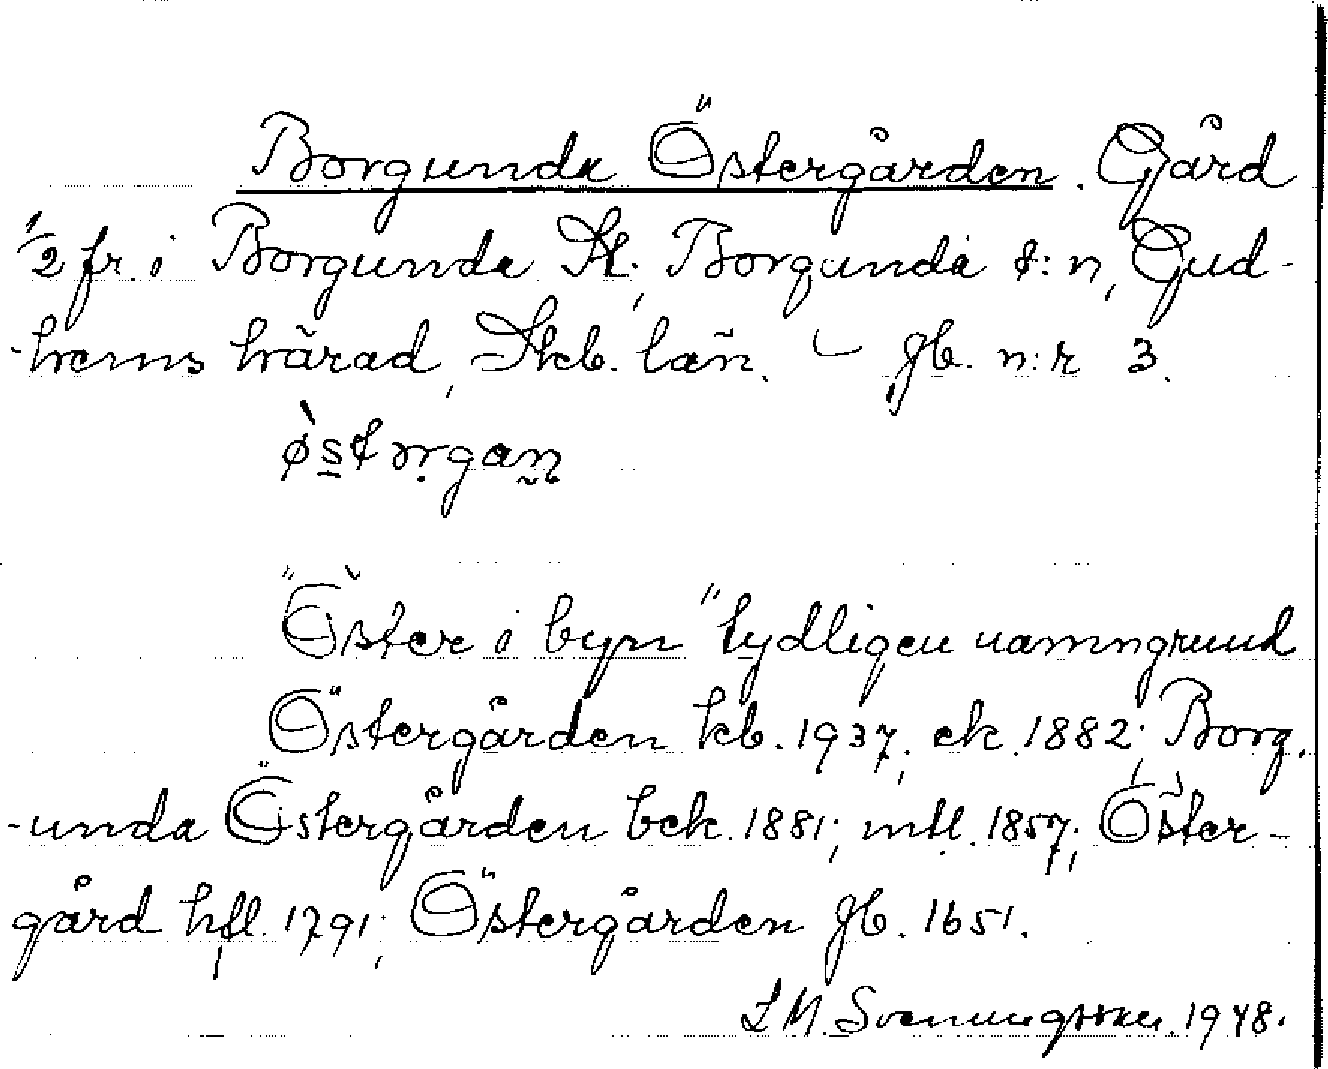 Borgunda Östergården. Gård
1/2 fr. i Borgunda St., Borgunda s:n, Gud-
-hems härad, Skb. län. – Jb. n:r 3.
ø̀stərgan
"Öster i byn" tydligen namngrund
Östergården kb. 1937; ek. 1882; Borg.
-unda Östergården bek. 1881; mtl. 1857; Öster-
gård hfl. 1791; Östergården Jb. 1651.
L M. Svenungsson. 1948.